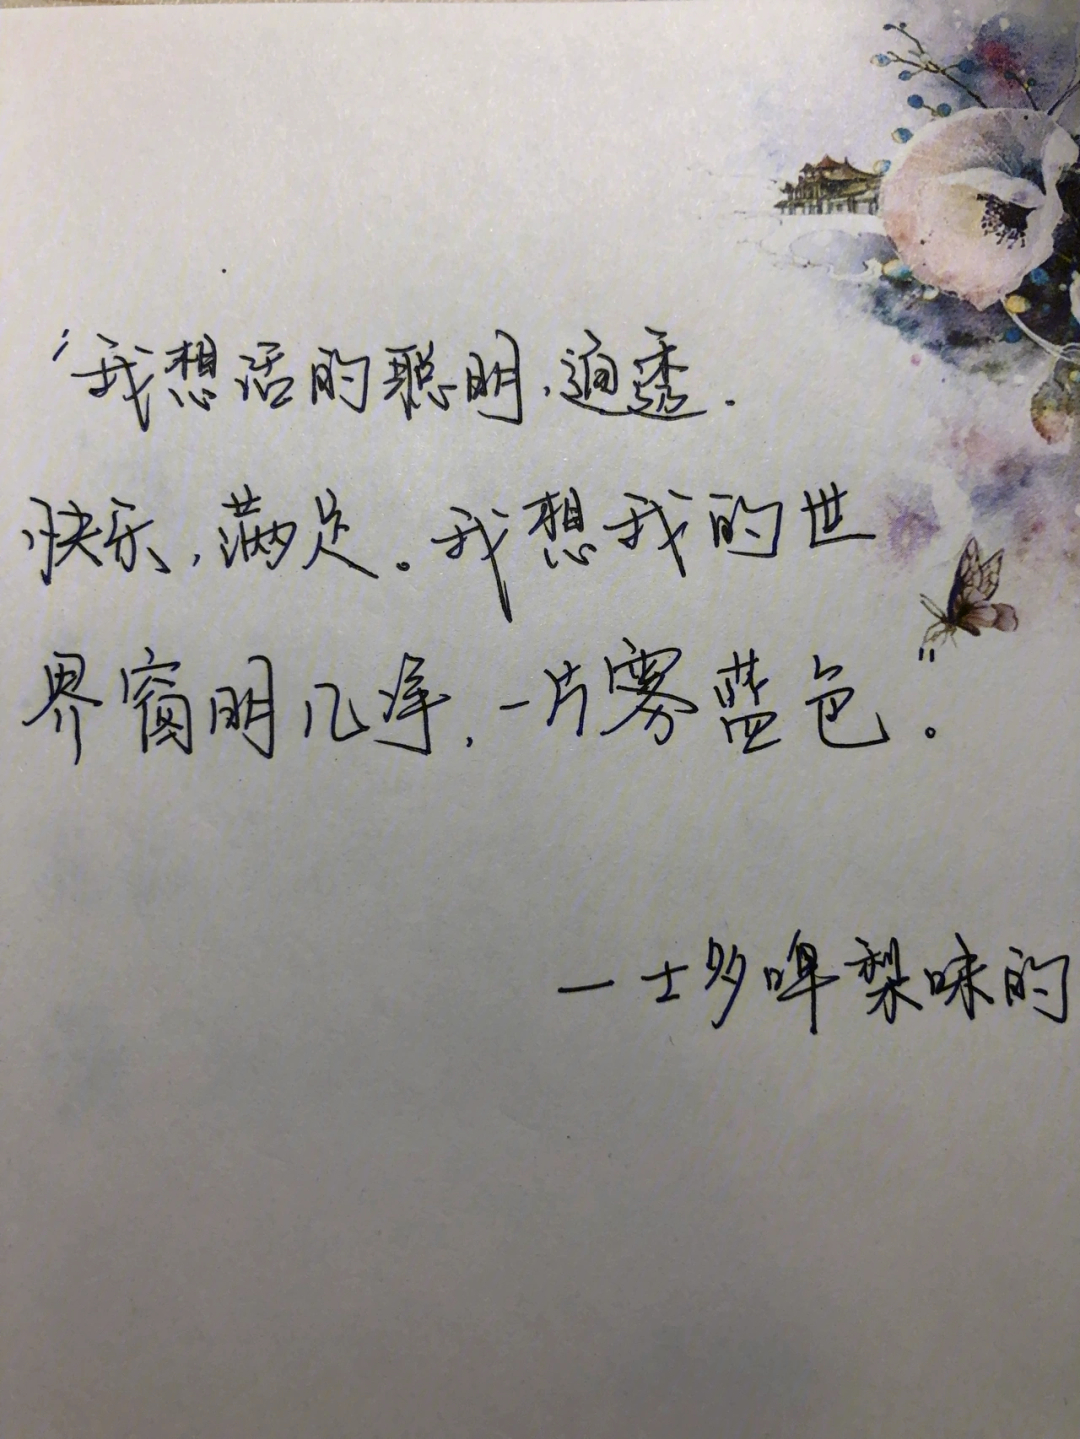 “我想活的聪明，通透．
快乐，满足。我想我的世
界窗明几净，一片雾蓝色。”
一士多啤梨味的